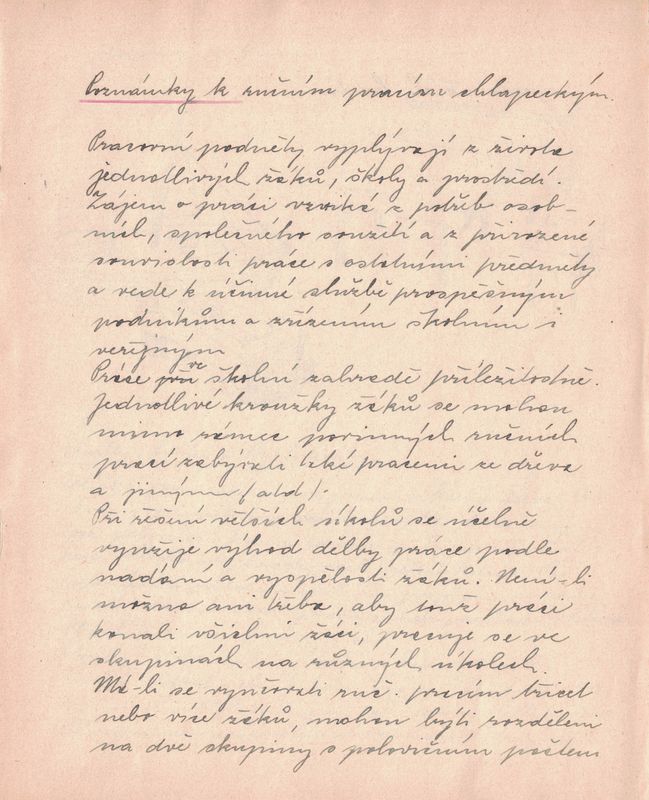 Poznámky k ručním pracím chlapeckým.
Pracovní podněty vyplývají z života
jednotlivých žáků, školy a prostředí.
Zájem o práci vzniká z potřeb osob-
ních, společného soužití a z přirozené
souvislosti práce s ostatními předměty
a vede k účinné službě prospěšným
podnikům a zřízením školním i
veřejným
Práce při ve školní zahradě příležitostně.
Jednotlivé kroužky žáků se mohou
mimo rámec povinných ručních
prací zabývati také pracemi ze dřeva
a jinými (atd).
Při řešení větších úkolů se účelně
využije výhod dělby práce podle
nadání a vyspělosti žáků. Není-li
možno ani třeba, aby touž práci
konali všichni žáci, pracuje se ve
skupinách na různých úkolech.
Má-li se vyučovati ruč. pracím třicet
nebo více žáků, mohou býti rozděleni
na dvě skupiny s polovičním počtem